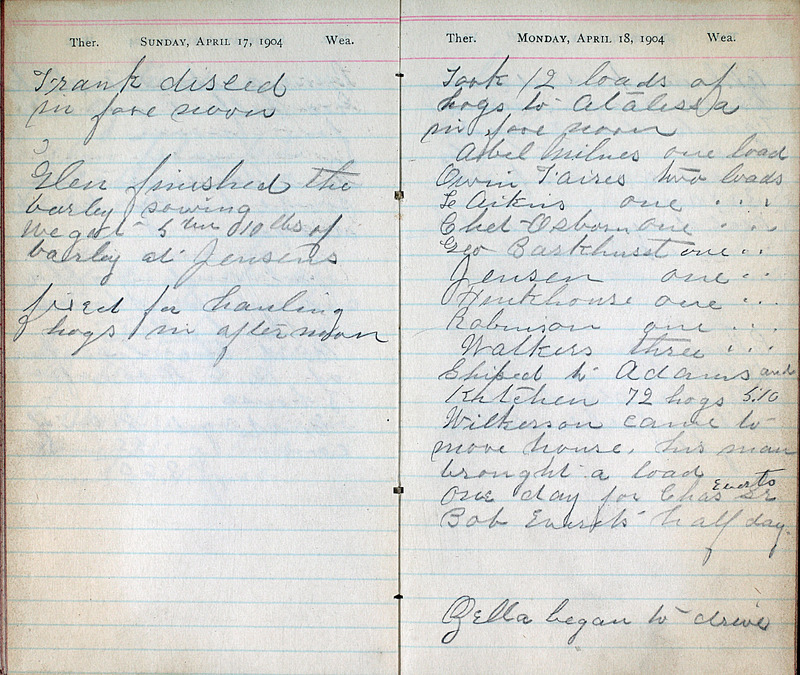 Ther. SUNDAY, APRIL 17, 1904 Wea.
Frank disced
in fore noon
Glen finished the
barley sowing
We got 5 bu 10 lbs of
barley at Jensens
fixed for hauling
hogs in afternoon
Ther. MONDAY, APRIL 18, 1904 Wea.
Took 12 loads of
hogs to Atalissa
in fore noon
Abel Milnes one load
Orvin Taires two loads
Aikins one " "
Chet Osborn one " "
Geo Barkhurst one " "
Jensen one " "
Hinkhouse one " "
Robinson one " "
Walkers three " "
Shiped to Adams and
Kitchen 72 hogs 5.10
Wilkerson came to
move house, his man
brought a load
One day for Chas Everts Sr
Bob Everts half day.
Zella began to drive